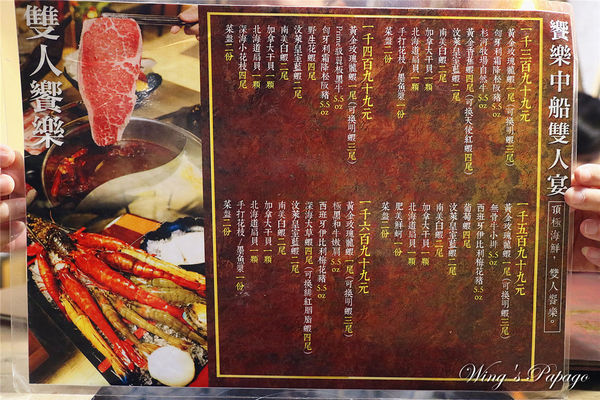 饗樂中船雙人宴
頂極海鮮,雙人饗樂。
一千三百九十九元
黃金玫瑰龍蝦一尾(可換明蝦三尾)
匈牙利霜降松阪豬5.5oz
杉河牧場自然牛5.5oz
黃金香蕉蝦四尾(可換天使紅蝦四尾)
汶萊皇室藍蝦二尾
南美白蝦二尾
加拿大干貝一顆
北海道扇貝一顆
手打花枝、墨魚漿一份
菜盤二份
一千四百九十九元
黃金玫瑰龍蝦一尾(可換明蝦三尾)
Prime級羽板腰牛5.5oz
匈牙利霜降松阪豬5.5oz
野生花蝦四尾
汶萊皇室藍蝦二尾
南美白蝦二尾
加拿大干貝一顆
北海道扇貝一顆
深海小花枝四尾
菜盤二份
一千五百九十九元
黃金玫瑰龍蝦一尾(可換明蝦三尾)
無骨牛小排5.5oz
西班牙伊比利梅花豬5.5oz
葡萄蝦四尾
汶萊皇室藍蝦二尾
南美白蝦二尾
加拿大干貝一顆
北海道扇貝一顆
肥美鮮蚵一份
菜盤二份
一千六百九十九元
黃金玫瑰龍蝦一尾(可換明蝦三尾)
極黑和牛嫩肩5.5oz
西班牙伊比利梅花豬5.5oz
深海大草蝦四尾(可換緋紅胭脂蝦四尾)
汶萊皇室藍蝦二尾
南美白蝦二尾
加拿大干貝一顆
北海道扇貝一顆
手打花枝、墨魚漿一份
菜盤二份
雙人饗樂
Wing's Papago